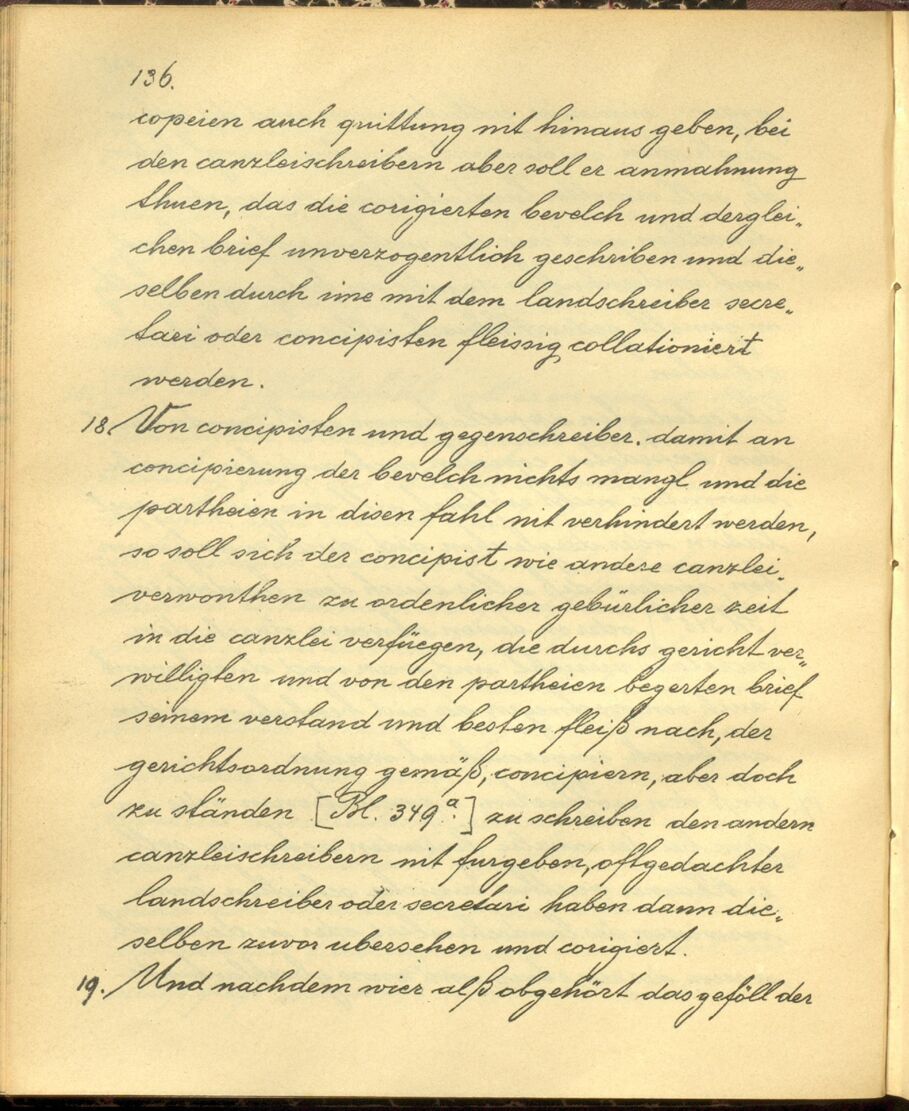 136.
copeien auch quittung nit hinaus geben, bei
den canzleischreibern aber soll er anmahnung
thuen, das die corigierten bevelch und derglei„
chen brief unverzogentlich geschriben und die„
selben durch ime mit dem landschreiber secre„
tari oder concipisten fleissig collationiert
werden.
18. Von concipisten und gegenschreiber. damit an
concipierung der bevelch nichts mangl und die
partheien in disen fahl nit verhindert werden,
so soll sich der concipist wie andere canzlei„
verwonthen zu ordenlicher gebürlicher zeit
in die canzlei verfüegen, die durchs gericht ver„
willigten und von den partheien begerten brief
seinem verstand und besten fleiß nach, der
gerichtsordnung gemäß, concipiern, aber doch
zu ständen [Bl. 349a.] zu schreiben den andern
canzleischreibern nit furgeben, oftgedachter
landschreiber oder secretari haben dann die„
selben zuvor ubersehen und corigiert.
19. Und nachdem wier alß obgehört das geföll der